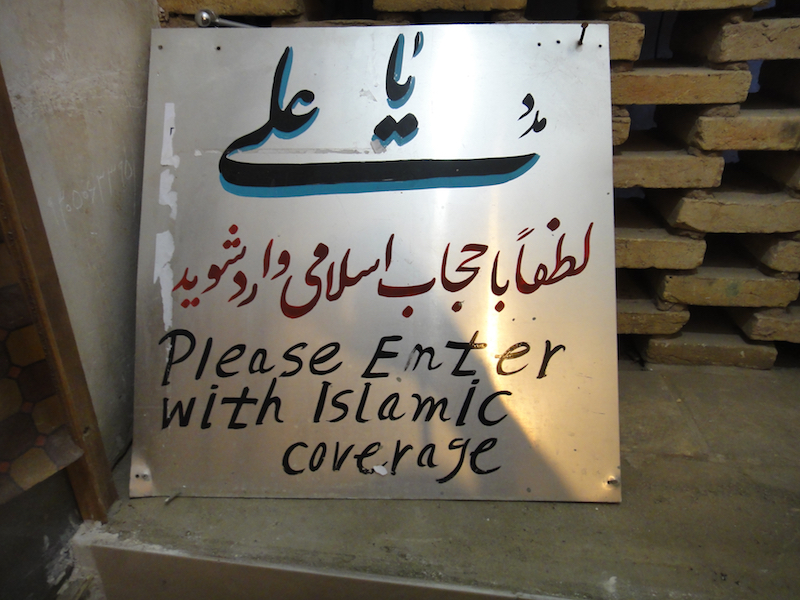 یا علی مدد
لطفاً با حجاب اسلامی وارد شوید
Please Enter
with Islamic
coverage